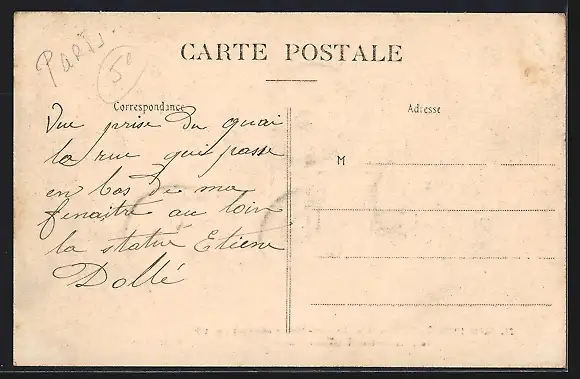 Paris.
5e
CARTE POSTALE
Correspondance
Adresse
M
Vue prise du quai
la rue qui passe
en bas de ma
fenaitre au loin
la statue Etiene
Dollé